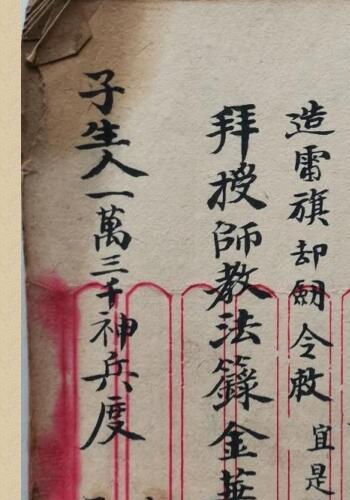 造雷旗却劒令敕
宜是
拜授師教法籙金華
子生人一萬三千神兵度